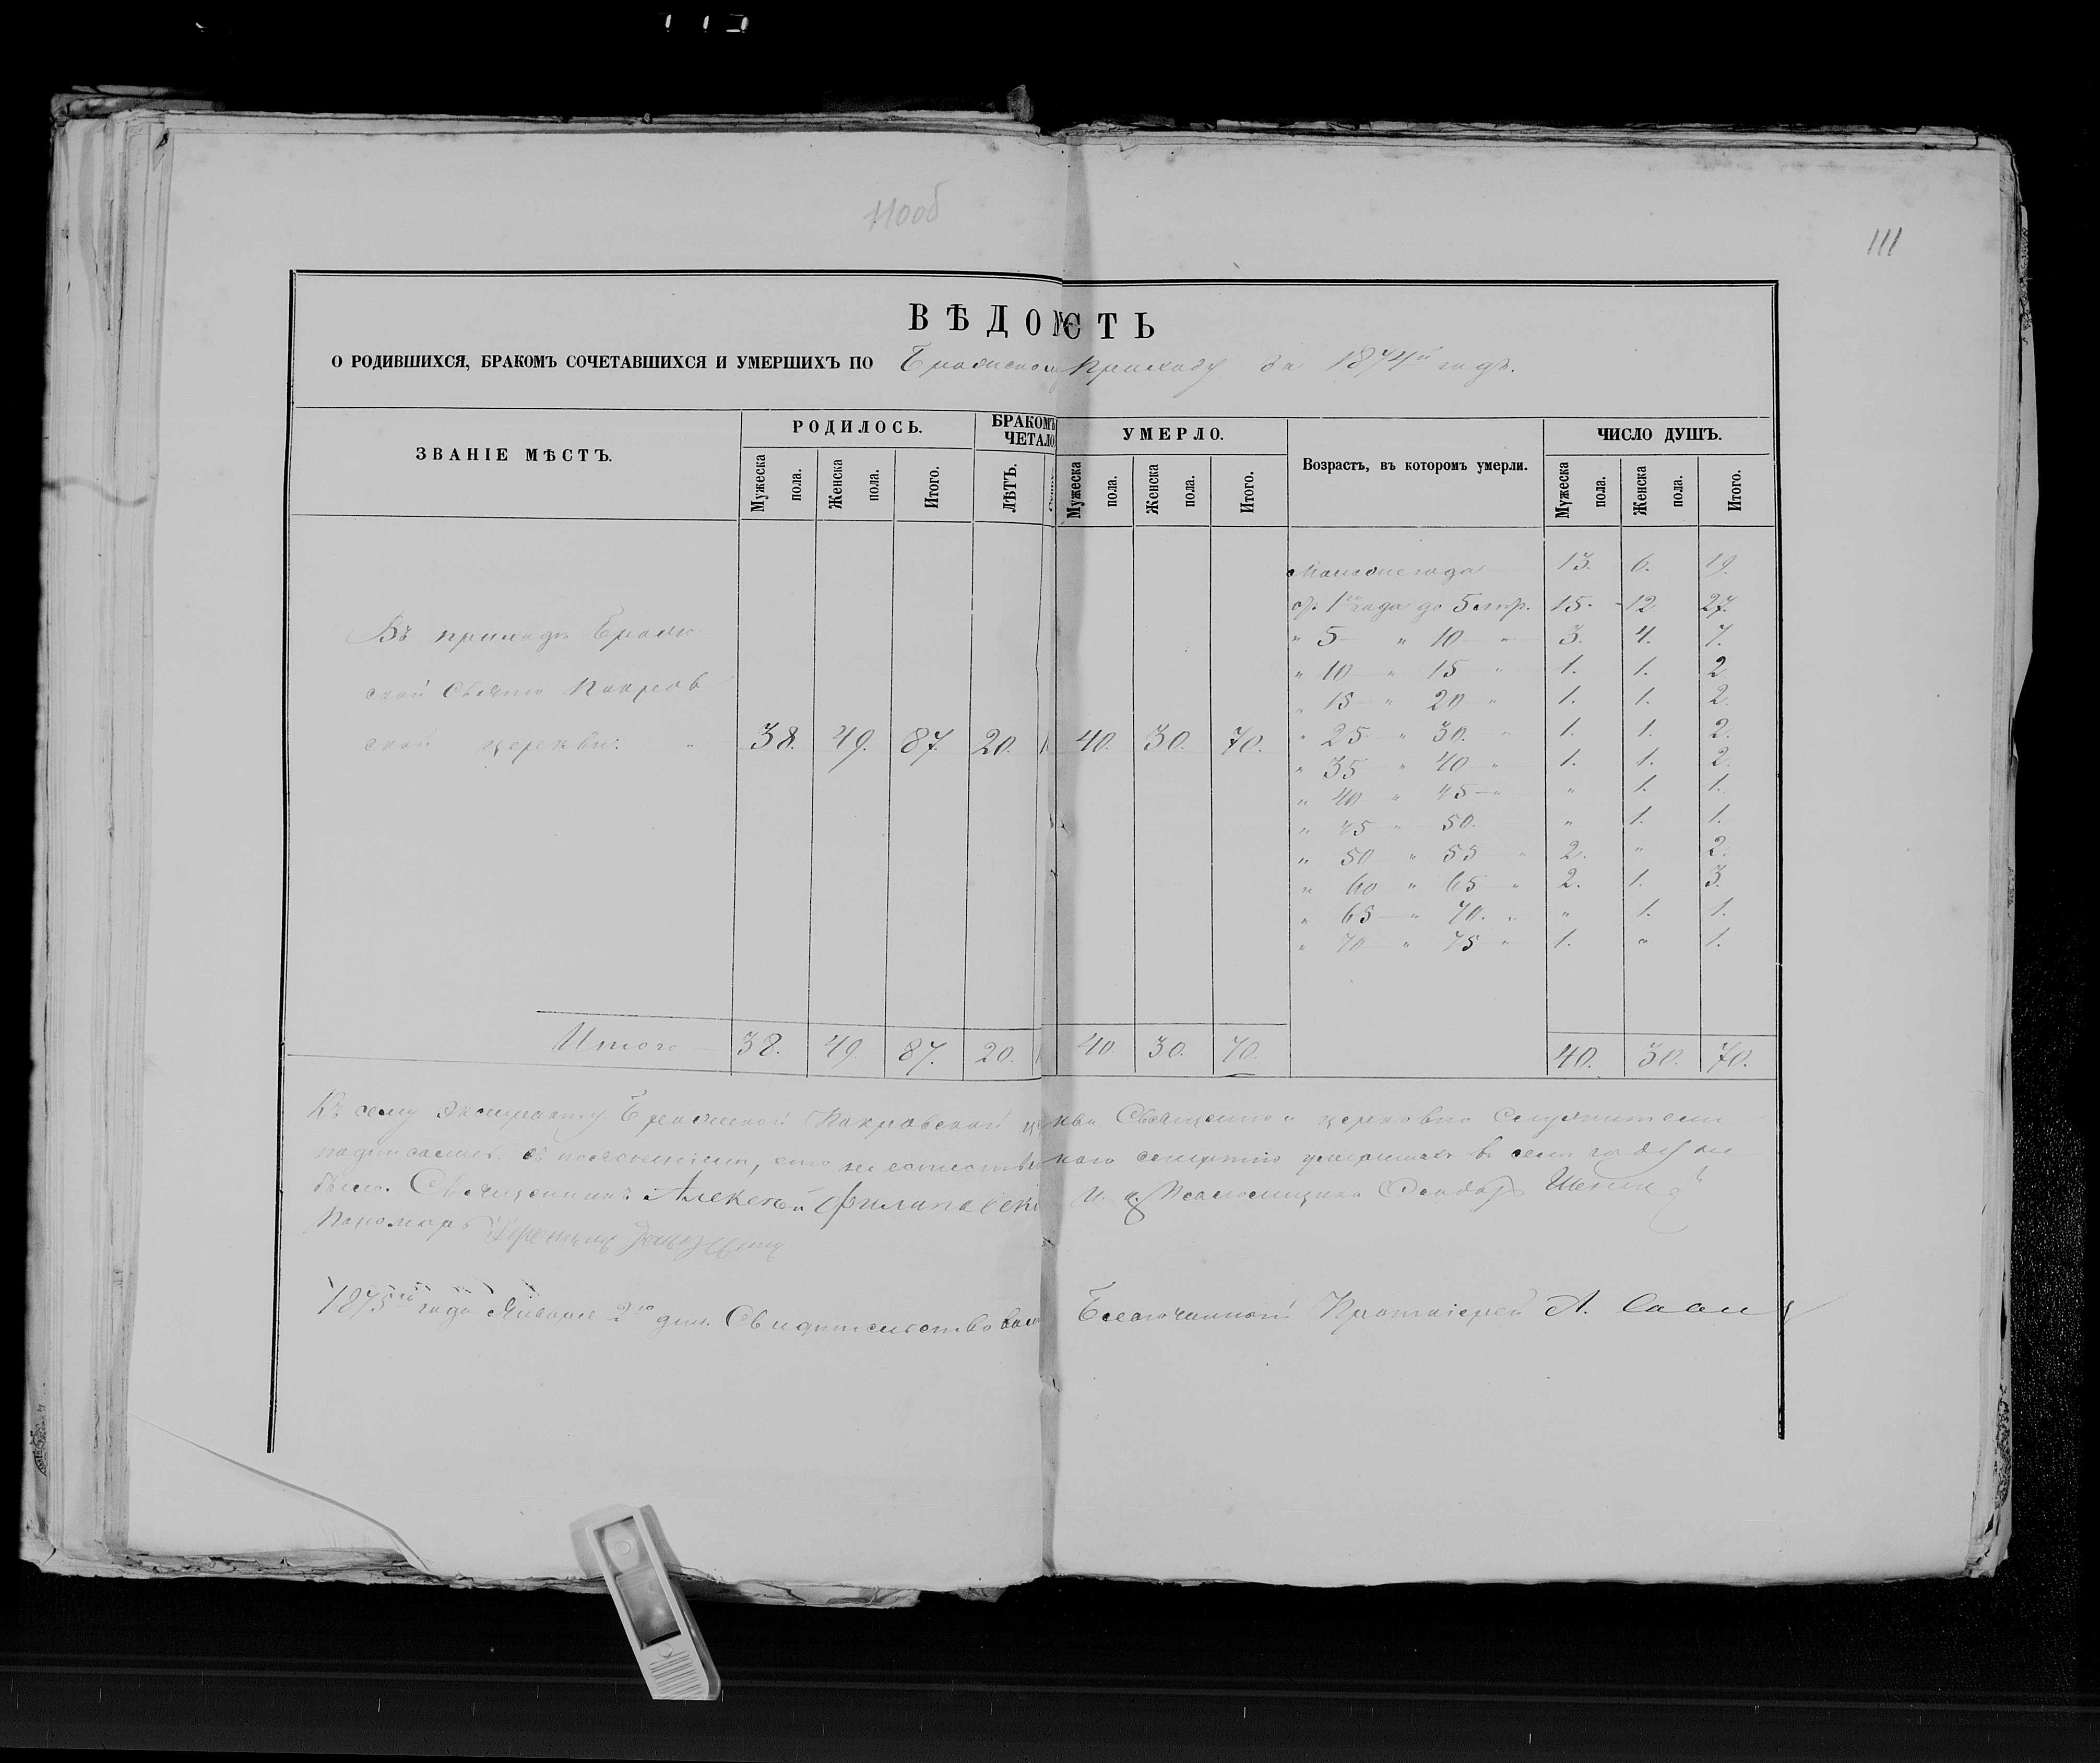 110об
111
ВѢДОМОСТЬ
О РОДИВШИХСЯ, БРАКОМЪ СОЧЕТАВШИХСЯ И УМЕРШИХЪ ПО приходу за 1874й годъ.
ЗВАНІЕ МѢСТЪ. РОДИЛОСЬ. БРАКОМЪ ЧЕТАЛО УМЕРЛО. Возрастъ, въ которомъ умерли. ЧИСЛО ДУШЪ.
Мужеска пола. Женска пола. Итого. ЛѢТЪ. Мужеска пола. Женска пола. Итого. Мужеска пола. Женска пола. Итого.
Моложе года 13. 6. 19.
отъ 1го года до 5 15. 12. 27.
" 5 " 10 " 3. 4. 7.
" 10 " 15 " 1. 1. 2.
" 15 " 20 " 1. 1. 2.
" 25 " 30. " 1. 1. 2.
" 35 " 40 " 1. 1. 2.
" 40 " 45 " " 1. 1.
" 45 " 50. " 1. 1.
" 50 " 55 " 2. " 2.
" 60 " 65 " 2. 1. 3.
" 65 " 70. " " 1. 1.
" 70 " 75 " 1. " 1.
Въ приходѣ
ской Свято Покров
ской церкви. " 38. 49. 87. 20. 40. 30. 70.
Итого 38. 49. 87. 20. 40. 30. 70. 40. 30. 70.
Къ сему Покровской Священно и церковно служители
подписались съ поясненіемъ, что не естествен ною смертію умершихъ въ семъ году не
было. Священникъ Алексѣй И. д. Псаломщика Ѳеодоръ
Пономарь
1875 года Января 2го дня. Свидѣтельствовалъ Благочинный Протоіерей А.